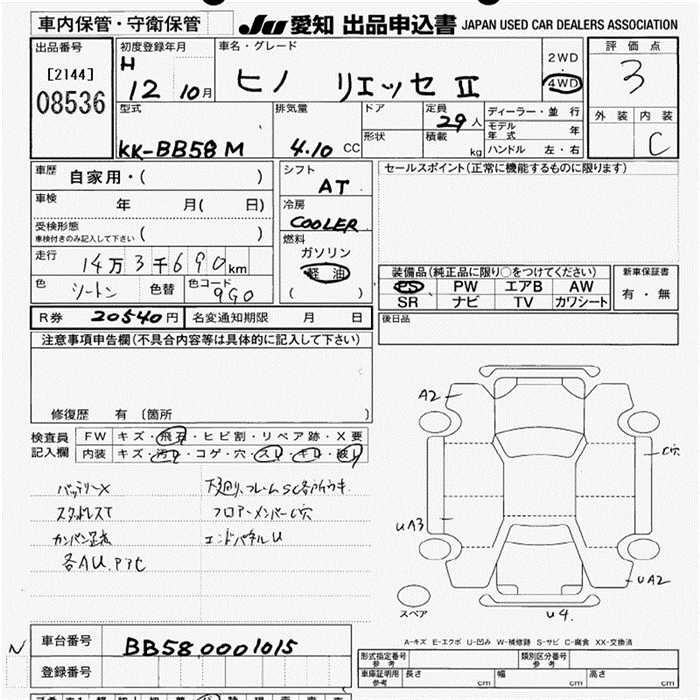 車内保管・守衛保管 JU 愛知 出品申込書 JAPAN USED CAR DEALERS ASSOCIATION
出品番号 初度登録年月 車名・グレード 2WD 評価点
[2144] H 12 10月 ヒノ リエッセⅡ 4WD 3
08536
型式 排気量 ドア 定員 29人 ディーラー・並行 外装 内装
KK-BB58M 4.10 CC 形状 積載 kg モデル年式 年 C
ハンドル 左・右
車歴 自家用・( ) シフト AT セールスポイント(正常に機能するものに限ります)
車検 年 月( 日) 冷房 COOLER
受検形態 ( )
車検付きのみ記入して下さい
燃料 ガソリン
走行 14万3千690km 軽油 装備品(純正品に限り○をつけてください) 新車保証書
色 ツートン 色替 色コード 9G0 ( ) PS PW エアB AW 有・無
SR ナビ TV カワシート
R券 20540円 名変通知期限 月 日 後日品
注意事項申告欄(不具合内容等は具体的に記入して下さい)
修復歴 有 〔箇所 〕
検査員 FW キズ・飛石・ヒビ割・リペア跡・X要
記入欄 内装 キズ・汚レ・コゲ・穴・スレ・キレ・破レ
A2
C穴
UA3
UA2
スペア U4.
バッテリーX 下廻り、フレームSC各所ウキ
スタッドレスT フロアーメンバーC穴
エンドパネルU
各AU.
A-キズ E-エクボ U-凹み W-補修跡 S-サビ C-腐食 XX-交換済
N 車台番号 BB580001015
登録番号
形式指定番号 参考 類別区分番号 参考
車庫証明用 参考 長さ cm 幅 cm 高さ cm